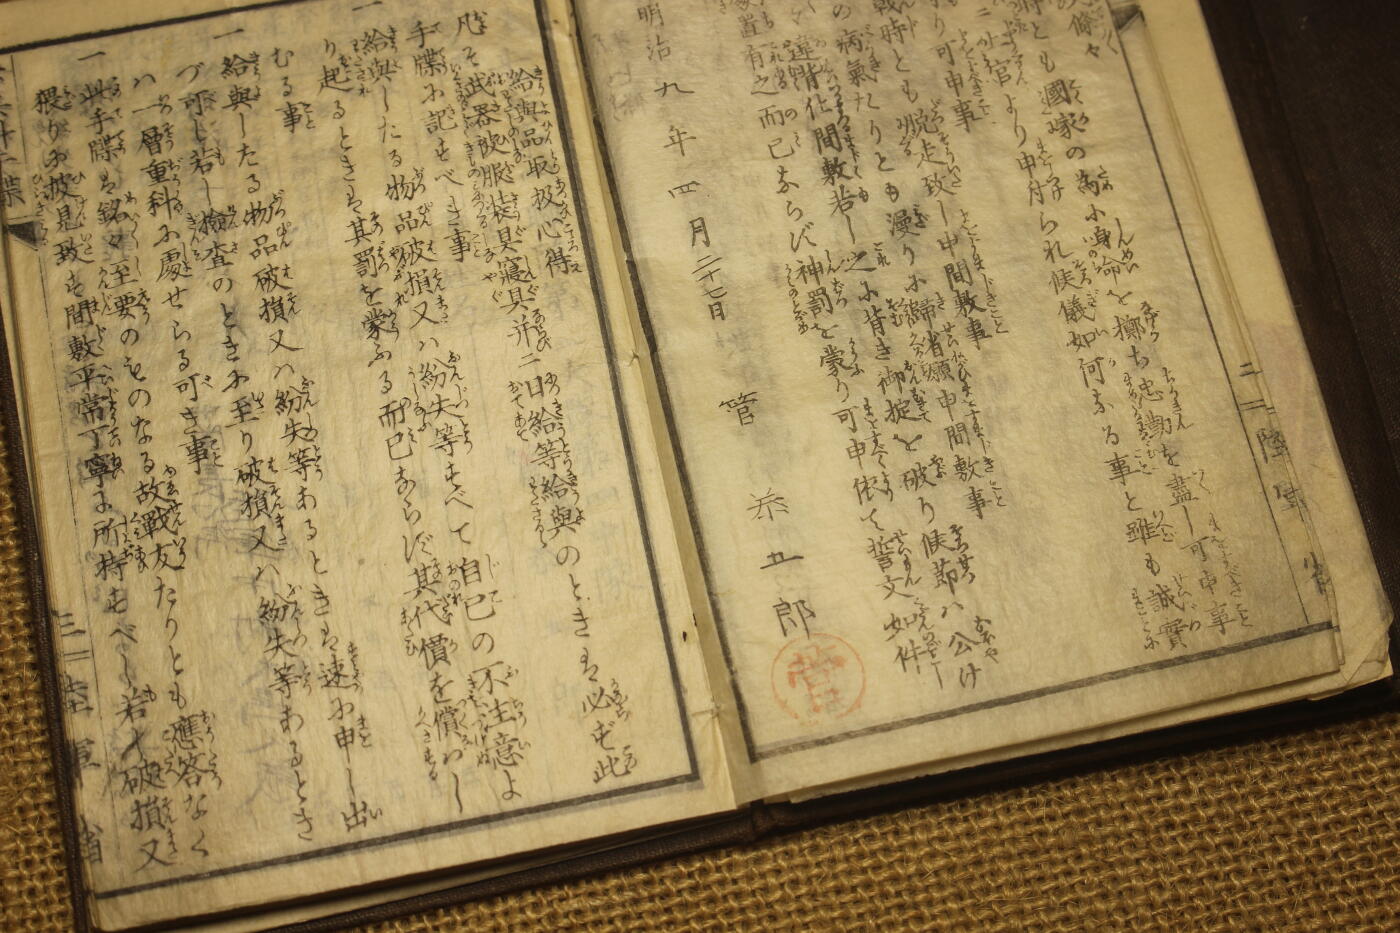 の條々
時とも國家の為小身命を擲ち忠勤を盡し可申事
上官より申付られ候儀如何なる事と雖も誠實
り可申事
戰時とも脱走致し申間敷事
の病氣たりとも漫りに歸省願申間敷事
違背仕間敷若し之に背き御掟を破り候節ハ公け
置有之而已ならず神罰を蒙り可申依て誓文如件
明治九年四月二十七日
菅 恭五郎
菅
二 陸軍省
給與品取扱心得
凡そ武器被服裝具寢具并ニ日給等給與のときは必ず此
手牒に記すべき事
一 給與したる物品破損又ハ紛失等すべて自己の不注意よ
り起るときは其罰を蒙ふる而已ならず其代價を償わし
むる事
一 給與したる物品破損又ハ紛失等あるときは速に申し出
づ可し若し檢査のときに至り破損又ハ紛失等あるとき
ハ一層重科に處せらる可き事
一 此手牒は銘々至要のものなる故戰友たりとも應答なく
猥りに披見致す間敷平常丁寧に所持すべし若し破損又
三 陸軍省